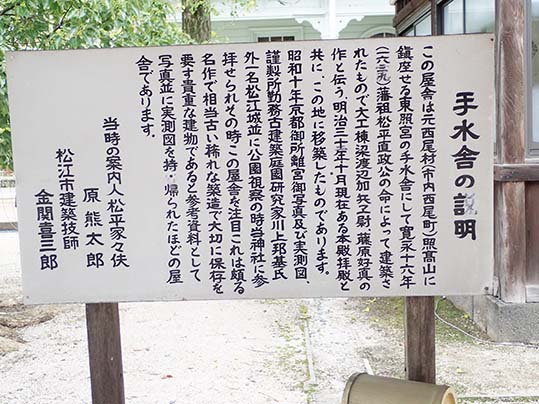 手水舎の説明
この屋舎は元西尾村(市内西尾町)照髙山に
鎮座せる東照宮の手水舎にして寛永十六年
(一六三九)藩祖松平直政公の命によって建築さ
れたもので大工棟梁渡辺加兵工尉 藤原好真の
作と伝う、明治三十一年十月現在ある本殿拝殿と
共に、この地に移築したものであります。
昭和十年京都御所離宮御写真及び実測図、
謹製所勤務古建築庭園研究家川上邦基氏
外一名松江城並に公園視察の時当神社に参
拝せられその時この屋舎を注目これは頗る
名作で相当古い稀れな築造で大切に保存を
要す貴重な建物であると参考資料として
写真並に実測図を持ち帰られたほどの屋
舎であります。
当時の案内人松平家々伕
原熊太郎
松江市建築技師
金関喜三郎